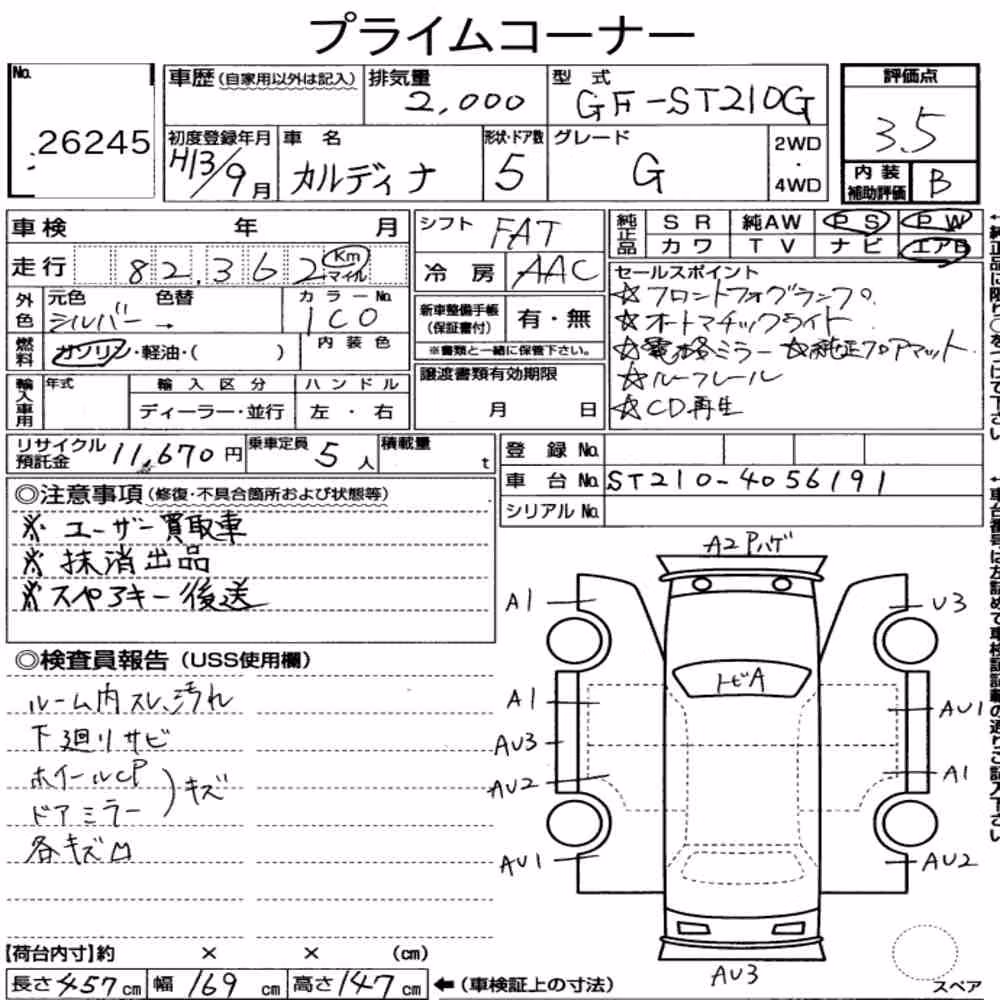 プライムコーナー
No. 26245
車歴 (自家用以外は記入)
排気量 2,000
型式 GF-ST210G
評価点 3.5
初度登録年月 H13/9月
車名 カルディナ
形状・ドア数 5
グレード G
2WD・4WD
内装補助評価 B
車検 年 月
シフト FAT
純正品 SR 純AW PS PW
カワ TV ナビ エアB
走行 82,362 Km マイル
冷房 AAC
セールスポイント
☆フロントフォグランプ。
☆オートマチックライト
☆電格ミラー ☆純正フロアマット
☆ルーフレール
☆CD再生
外色 元色 シルバー 色替 →
カラーNo. 1C0
新車整備手帳(保証書付) 有・無
※書類と一緒に保管下さい。
燃料 ガソリン・軽油・( )
内装色
譲渡書類有効期限
月 日
輸入車用 年式 輸入区分 ハンドル
ディーラー・並行 左・右
リサイクル預託金 11,670円
乗車定員 5人
積載量 t
登録No.
車台No. ST210-4056191
シリアルNo.
◎注意事項 (修復・不具合箇所および状態等)
※ ユーザー買取車
※ 抹消出品
※ スペアキー後送
◎検査員報告 (USS使用欄)
ルーム内スレ、汚れ
下廻りサビ
ホイールCP
ドアミラー
)キズ
各キズ凹
A2 Pハゲ
A1
U3
トビA
A1
AU1
AU3
AU2
A1
AU1
AU2
AU3
スペア
【荷台内寸】約 × × (cm)
長さ457cm 幅169cm 高さ147cm
←(車検証上の寸法)
←純正品に限り○をつけて下さい
←車台番号は左詰めで車検証記載の通りご記入下さい